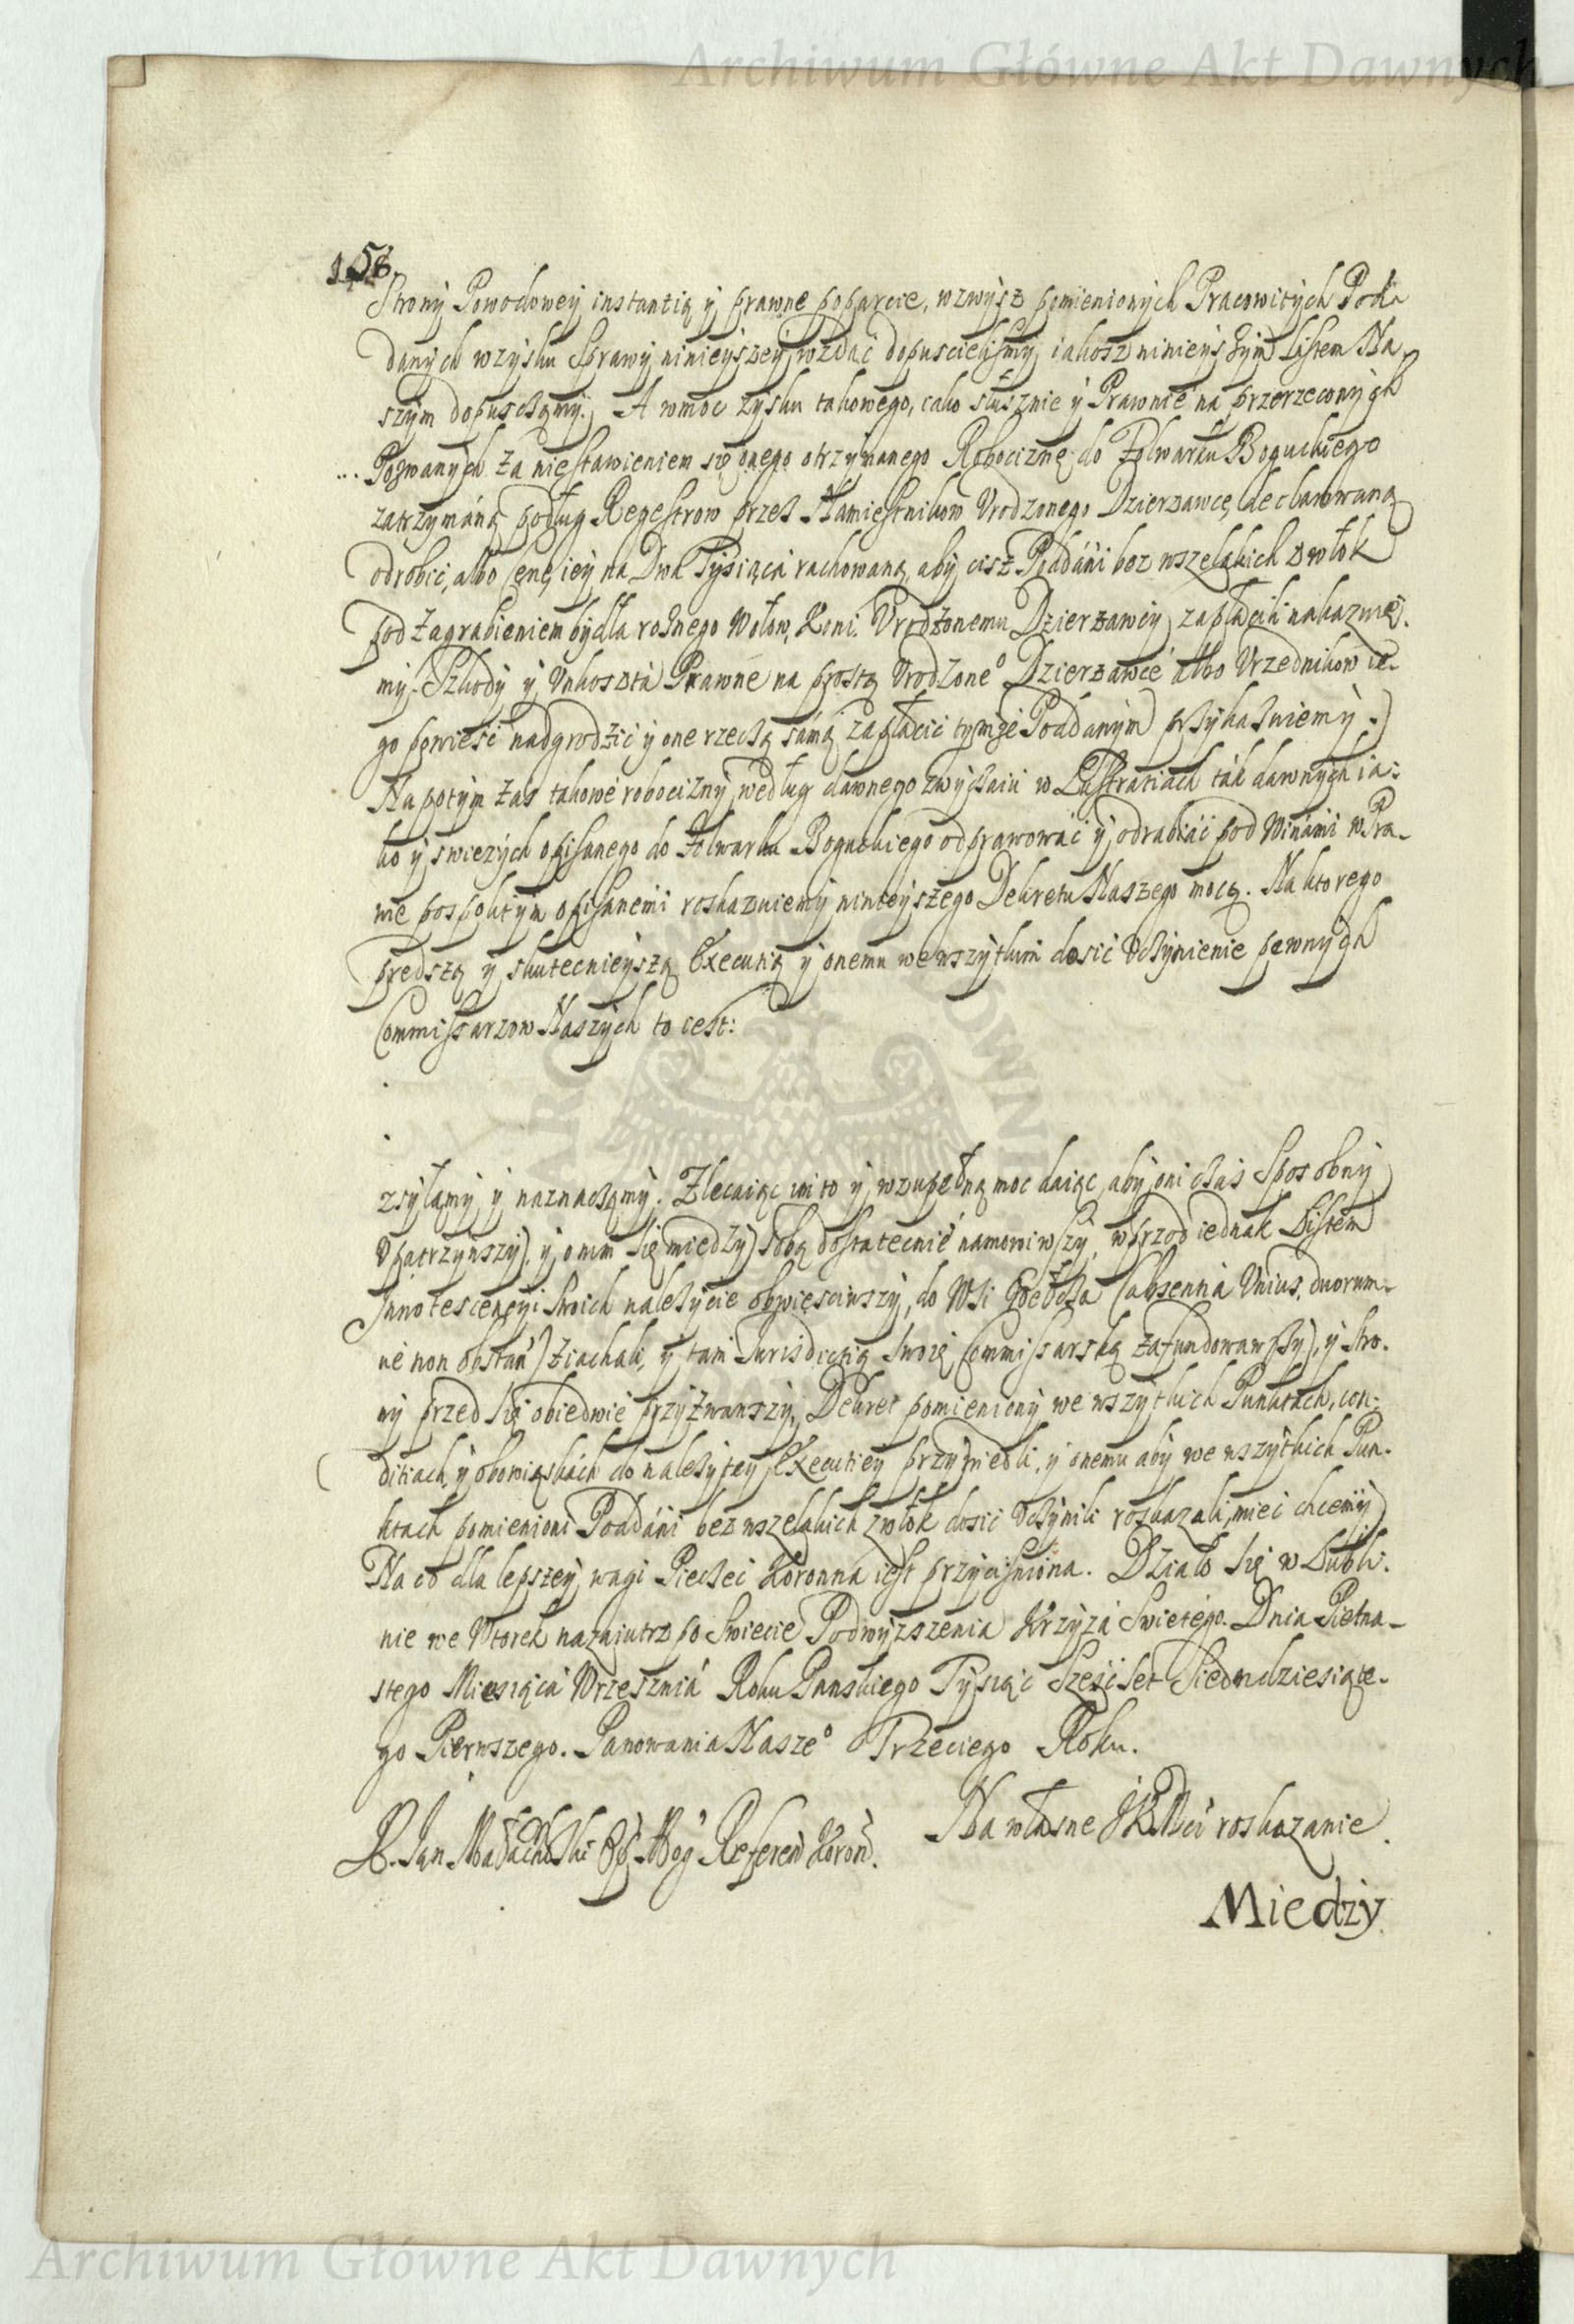 Archiwum Główne Akt Dawnych
158.
Strony Powodowey instantią y prawne poparcie, wzwysz pomienionych Pracowitych Pod-
danych wzysku Sprawy ninieyszey wzdać dopuscielismy iakosz ninieyszym Listem Na
szym dopusczamy. A wmoc zysku takowego, iako słusznie y Prawnie na przerzeconych
Pozwanych za niestawieniem się onego otrzymanego Robociznę do Folwarku Boguckiego
zatrzymáną podług Regestrow przez Namiestnikow Urodzonego Dzierzawcę declarowaną
odrobić, albo Cenę iey na Dwa Tysiąca rachowaną, aby cisz Poddáni bez wszelakich zwłok
pod zagrabieniem bydła roznego Wołow, Koni. Urodzonemu Dzierzawcy zapłacili nakazuie-
my. Szkody y Unkoszta Prawne na prostą Urodzone° Dzierzawce albo Urzednikow ie-
go powieść nadgrodzić y one rzeczą sámą zapłacić tymże Poddanym przykazuiemy.
Napotym zas takowe robocizny, według dawnego zwyczaiu w Lustratiach ták dawnych ia-
ko y swiezych opisanego do Folwarku Boguckiego odprawować y odrabiáć pod Winámi w Pra-
wie pospolitym opisanemi roskazuiemy ninieyszego Dekretu Naszego mocą. Na ktorego
prędszą y skutecznieyszą Executią y onemu we wszytkim dosić uczynienie pewnych
Commissarzow Naszych to iest:
zsyłamy y naznaczamy. Zlecaiąc im to y wzupełną moc daiąc, aby oni czás Sposobny
upatrzywszy, y onim się miedzy sobą dostatecznie namowiwszy, wprzod iednak Listem
Innotescencyi swoich należycie obwieściwszy, do Wsi (absentia Unius, duorum-
ue non obstan̄) ziachali, y tam Iurisdictią swoię Commissarską zafundowawszy, y Stro-
ny przed się obiedwie przyzwawszy, Dekret pomieniony we wszytkich Punktach, con-
ditiach, y obowiąskách do należytey Executiey przywiedli, y onemu aby we wszytkich Pun-
ktach pomienioni Poddáni bez wszelakich zwłok dosić uczynili roskazali, mieć chcemy
Na co dla lepszey wagi Pieczęć Koronna iest przycisniona. Działo się w Lubli-
nie we Wtorek nazaiutrz po Swiecie Podwyzszenia Krzyzá Swietego. Dnia Pietna-
stego Miesiąca Wrzesznia Roku Panskiego Tysiąc Szeschset Siedmdziesiąte-
go Pierwszego. Panowania Nasze° Trzeciego Roku.
Jan Małachowski Op. Mog. Referen̄ Koron̄. Na własne JKMci roskazanie.
Miedzy
Archiwum Główne Akt Dawnych